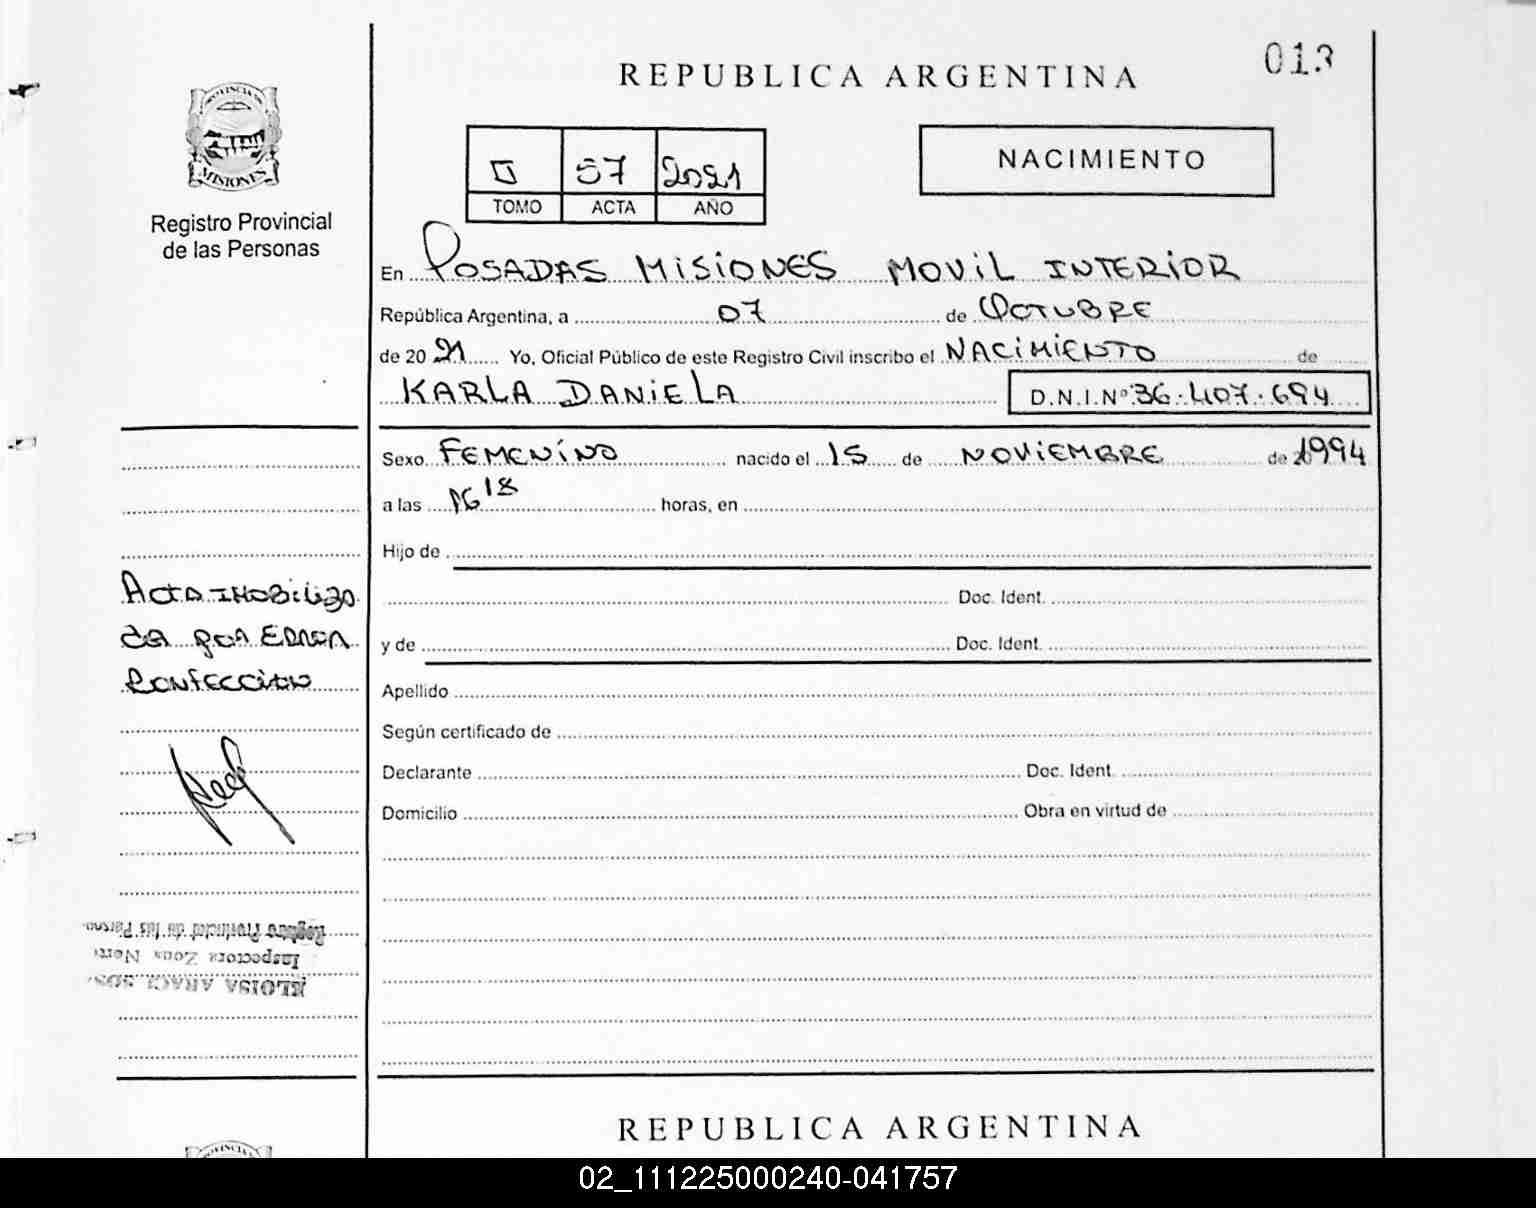 013
REPUBLICA ARGENTINA
PROVINCIA DE
MISIONES
Registro Provincial
de las Personas
57 2021
TOMO ACTA AÑO
NACIMIENTO
En POSADAS MISIONES MOVIL INTERIOR
República Argentina, a 07 de OCTUBRE
de 20 21 Yo, Oficial Público de este Registro Civil inscribo el NACIMIENTO de
KARLA DANIELA D.N.I.Nº 36.407.694
Sexo FEMENINO nacido el 15 de NOVIEMBRE de 1994
a las 16 18 horas, en
Hijo de
Doc. Ident.
y de Doc. Ident.
Apellido
Según certificado de
Declarante Doc. Ident.
Domicilio Obra en virtud de
ACTA INOBILIZA
DA POR ERROR
CONFECCION
ELOISA ARACI
Inspectora Zona Norte
Registro Provincial de las Person
REPUBLICA ARGENTINA
02_111225000240-041757